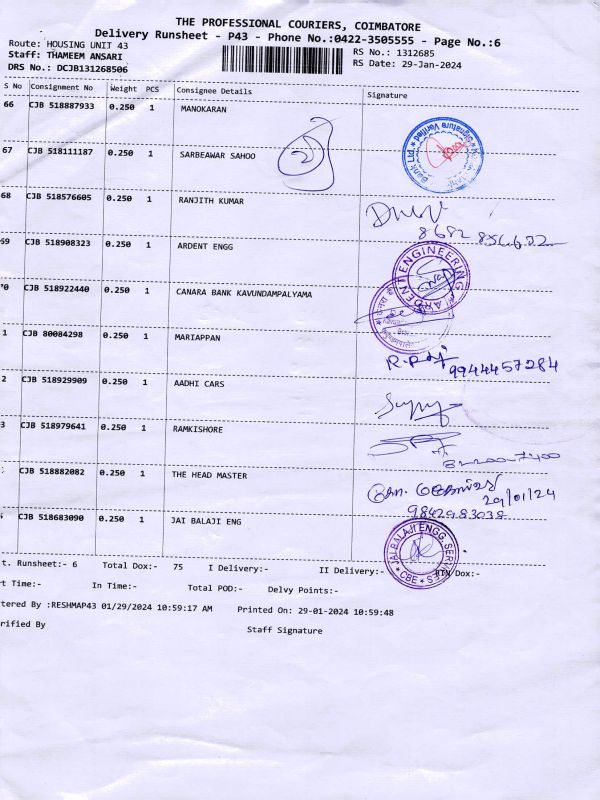 THE PROFESSIONAL COURIERS, COIMBATORE
Delivery Runsheet - P43 - Phone No.:0422-3505555 - Page No.:6
Route: HOUSING UNIT 43
RS No.: 1312685
Staff: THAMEEM ANSARI
RS Date: 29-Jan-2024
DRS No.: DCJB131268506
S No Consignment No Weight PCS Consignee Details Signature
66 CJB 518887933 0.250 1 MANOKARAN
67 CJB 518111187 0.250 1 SARBEAWAR SAHOO
Bank Ltd. Signature Verified
68 CJB 518576605 0.250 1 RANJITH KUMAR
69 CJB 518908323 0.250 1 ARDENT ENGG
ARDENT ENGINEERING
70 CJB 518922440 0.250 1 CANARA BANK KAVUNDAMPALYAMA
1 CJB 80084298 1 0.250 1 MARIAPPAN
9944457284
2 CJB 518929909 0.250 1 AADHI CARS
3 CJB 518979641 0.250 1 RAMKISHORE
CJB 518882082 0.250 1 THE HEAD MASTER
29/01/24
9842983038
CJB 518683090 0.250 1 JAI BALAJI ENG
JAI BALAJI ENGG SERVICES CBE
t. Runsheet:- 6 Total Dox:- 75 I Delivery:- II Delivery:- RTN Dox:-
rt Time:- In Time:- Total POD:- Delvy Points:-
tered By :RESHMAP43 01/29/2024 10:59:17 AM Printed On: 29-01-2024 10:59:48
rified By Staff Signature